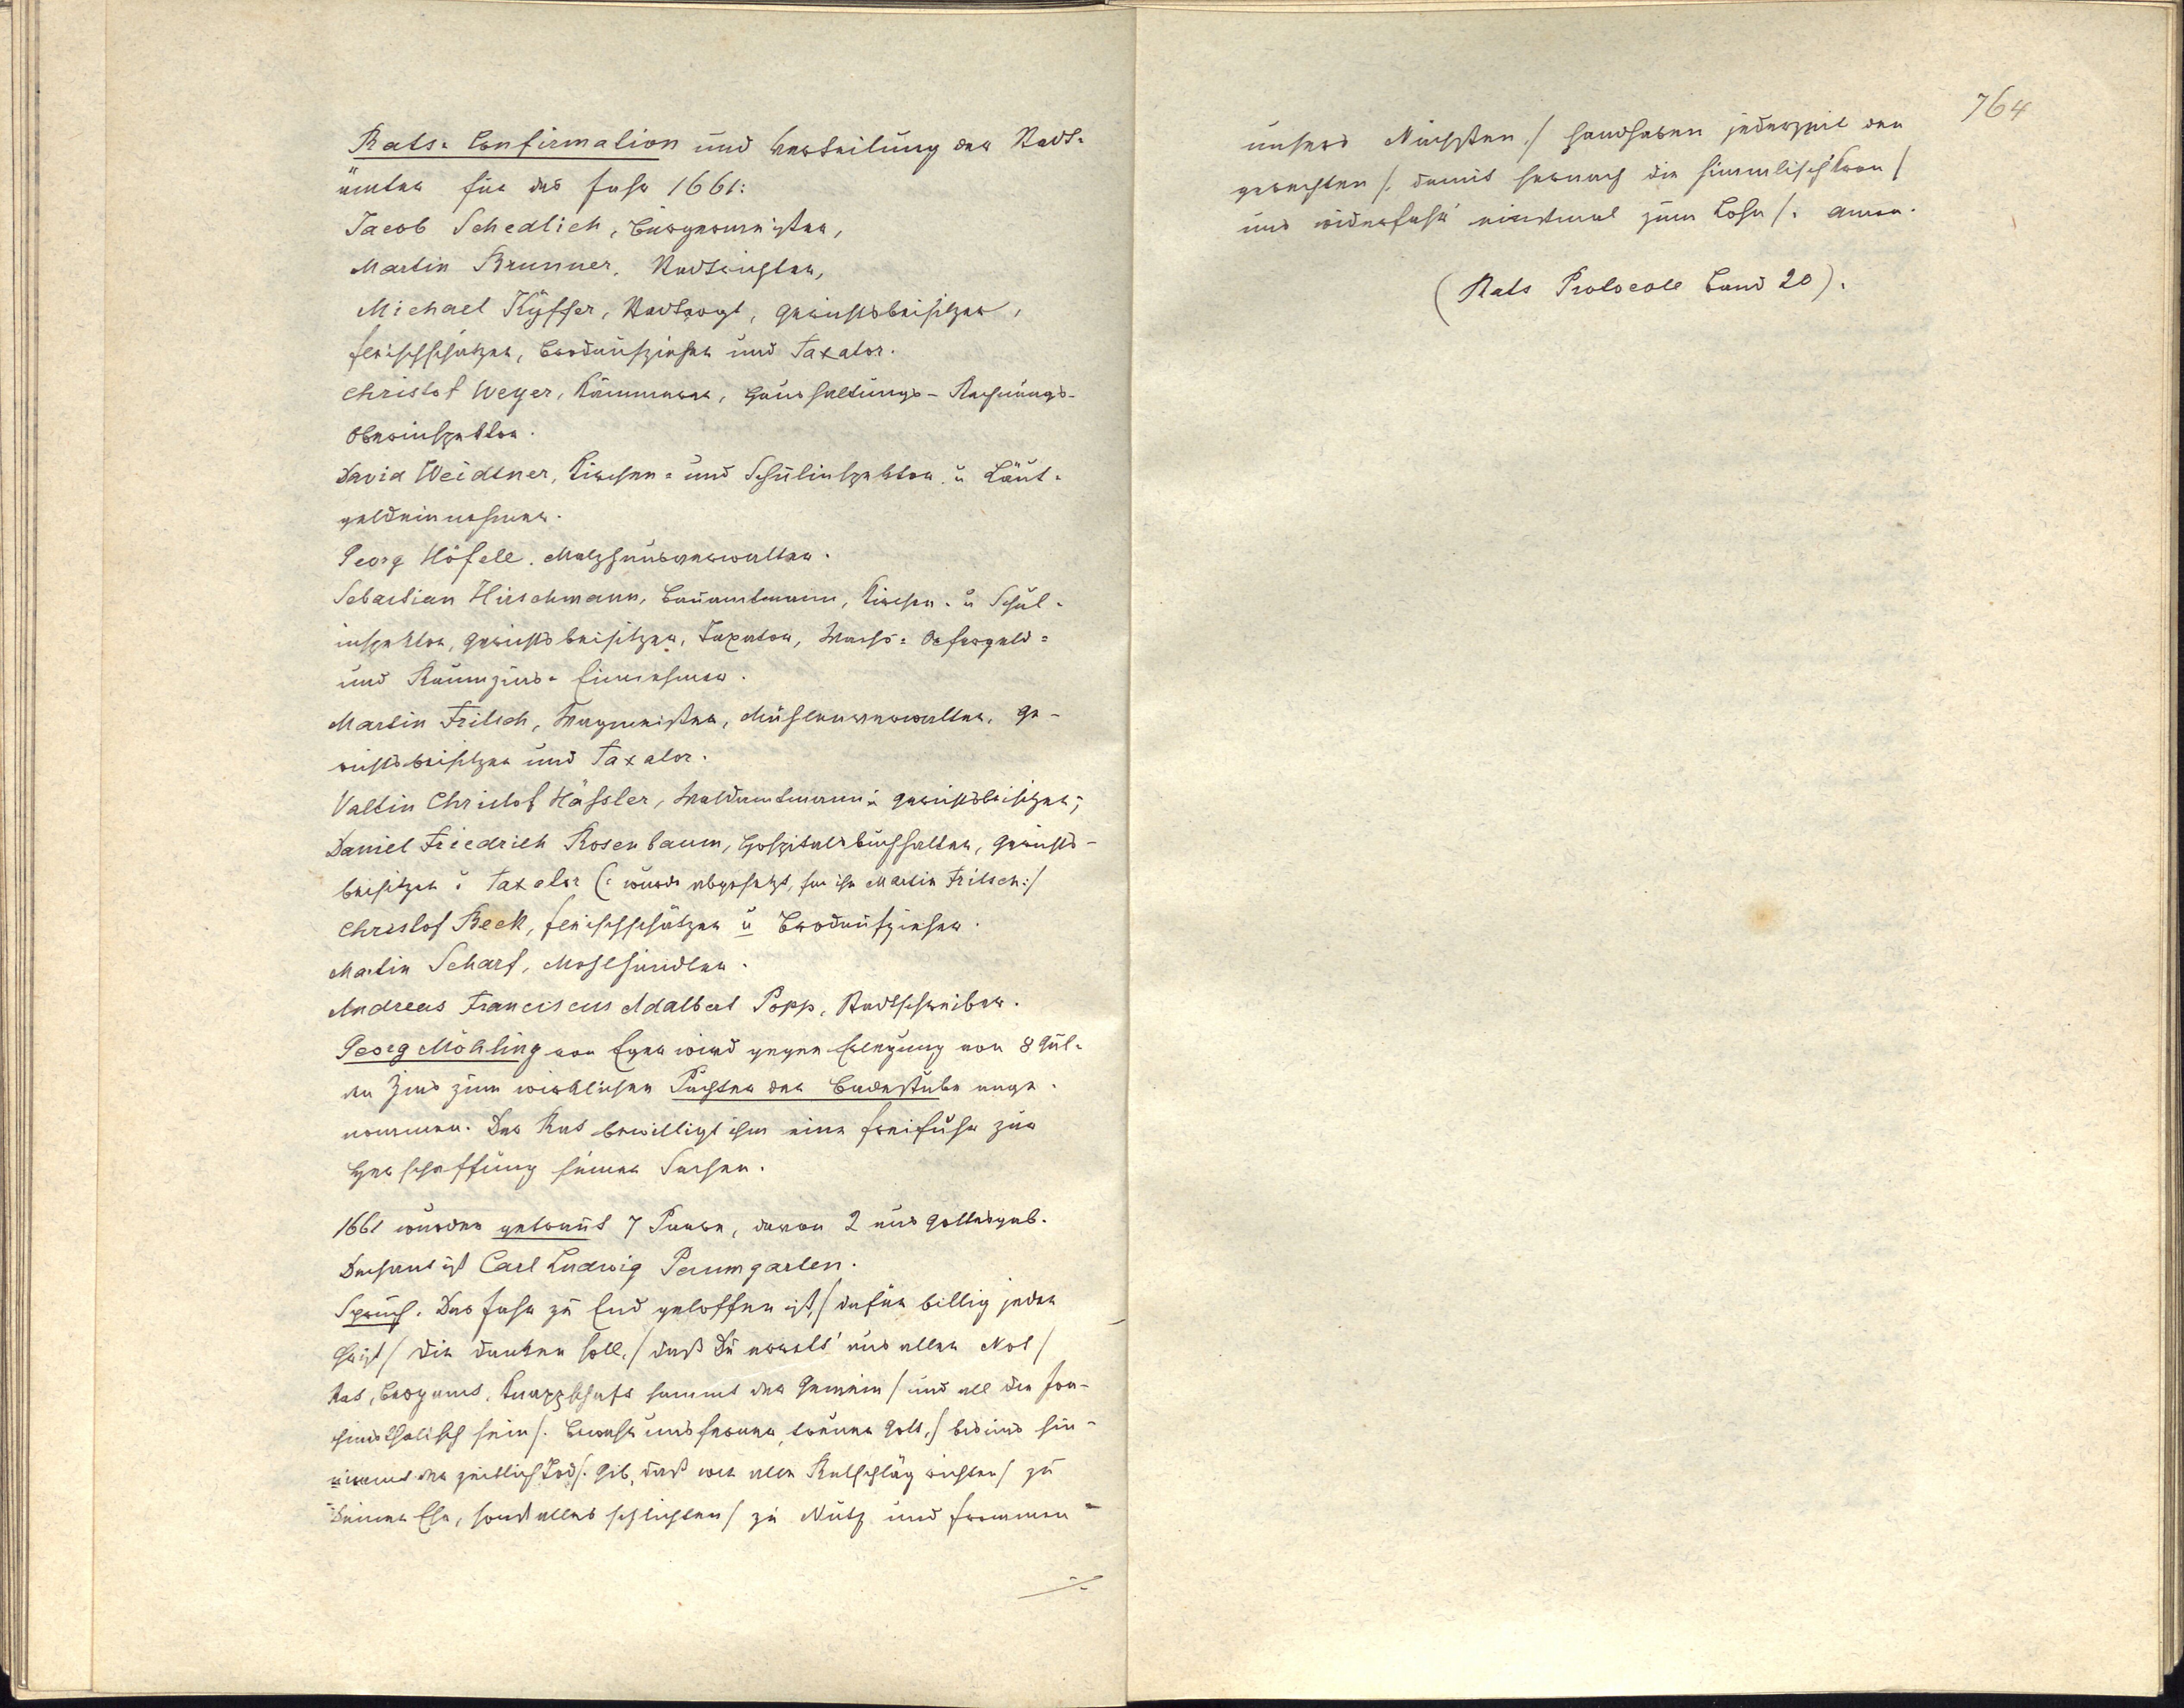 Rats-Confirmation und Verteilung der Stadt-
ämter für das Jahr 1661:
Jacob Schedlich, Bürgermeister,
Martin Brunner, Stadtrichter,
Michael Küffer, Stadtvogt, Gerichtsbeisitzer,
Fleischschätzer, Brodaufzieher und Taxator.
Christof Weyer, Kämmerer, Haushaltungs-Rechnungs-
Oberinspektor.
David Weidtner, Kirchen- und Schulinspektor u Läut-
geldeinnehmer.
Georg Höfele. Malzhausverwalter.
Sebastian Hirschmann, Bauamtmann, Kirchen- u Schul-
inspektor, Gerichtsbeisitzer, Taxator, Wachs- Opfergeld-
und Raumzins-Einnehmer.
Martin Fritsch, Wagmeister, Mühlenverwalter, Ge-
richtsbeisitzer und Taxator.
Valtin Christof Häßler, Waldamtmann u Gerichtsbeisitzer;
Daniel Friedrich Rosenbaum, Hospitalsbuchhalter, Gerichts-
beisitzer u Taxator (: wurde abgesetzt, für ihn Martin Fritsch :/
Christof Beck, Fleischschätzer u Brodaufzieher.
Martin Scharf, Mehlhändler.
Andreas Franciscus Adalbert Popp, Stadtschreiber.
Georg Möhling von Eger wird gegen Erlegung von 8 Gul-
den Zins zum wirklichen Pachter der Badestube ange-
nommen. Der Rat bewilligt ihm eine Freifuhr zur
Herschaffung seiner Sachen.
1661 wurden getraut 7 Paare, davon 2 aus Gottesgab.
Dechant ist Carl Ludwig Perumgarten.
Spruch. Das Jahr zu End geloffen ist,/ dafür billig jeder
Christ/ Dir danken soll,/ daß Du errett' aus aller Not/
Rat, Bergamt, Knappschaft sammt der Gemein/ und all die Joa-
chimsthalisch sein/. Bewahr uns ferner, treuer Gott,/ bis uns hin-
nimmt der zeitlich Tod/. Gib, daß wir alle Ratschläg richten/ zu
Deiner Ehr, sonst alles schlichten/ zu Nutz und Frommen
764
unsers Nächsten,/ handhaben jederzeit den
gerechten/. damit hernach die himmlisch' Kron/
uns widerfahr' einstmal zum Lohn/. Amen.
(Rats Protocole Band 20).